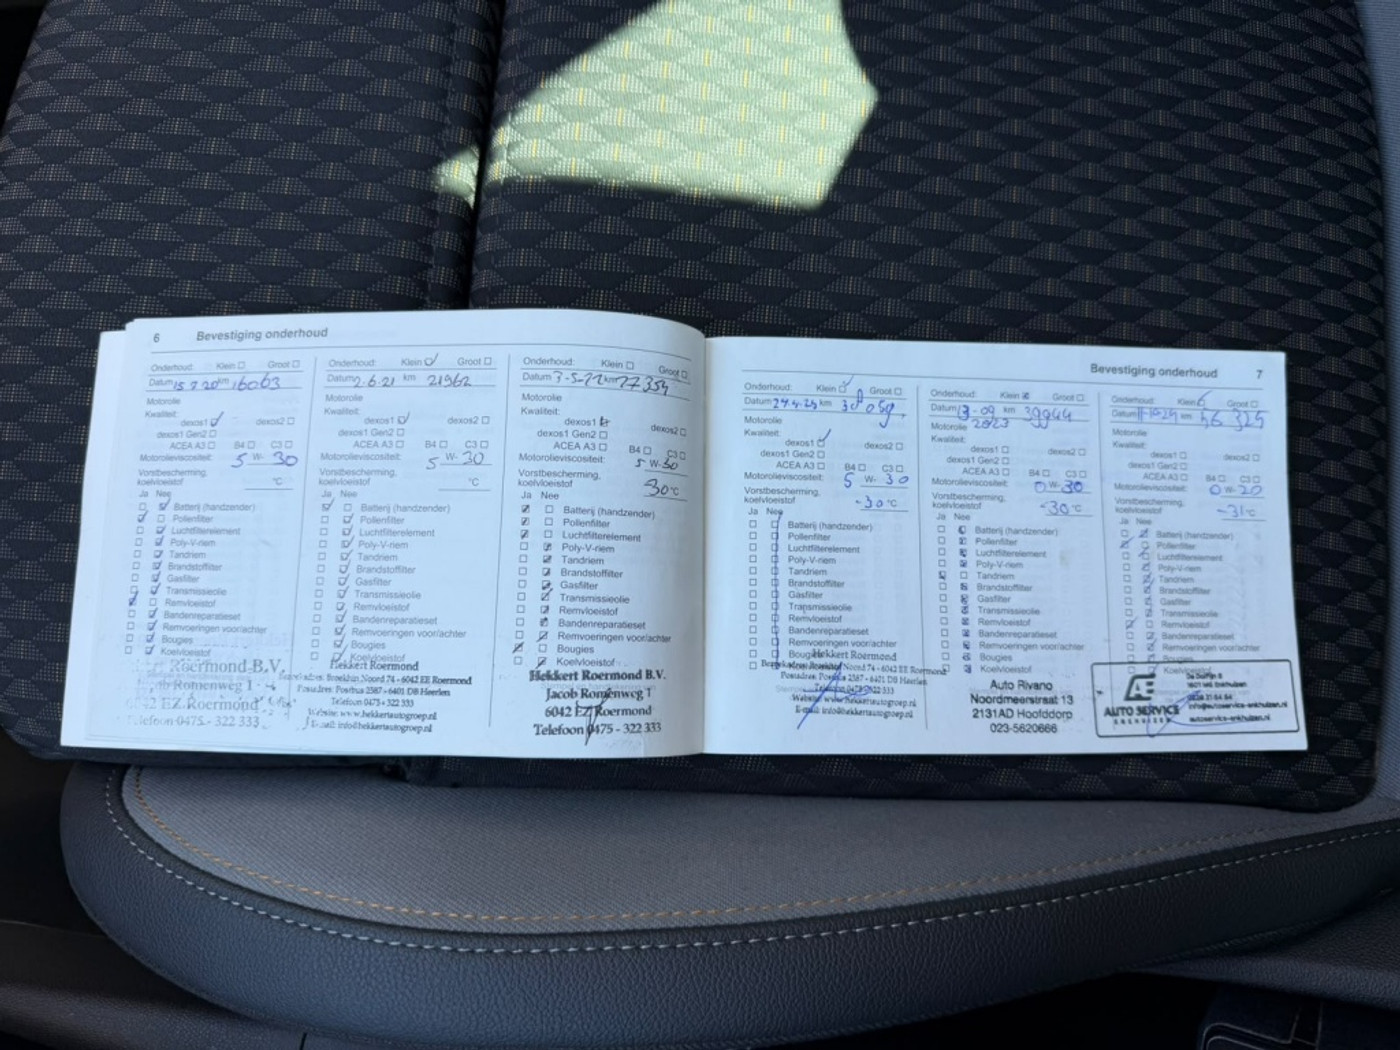 6 Bevestiging onderhoud
Onderhoud: Klein Groot
Datum 15.7.20 km 16063
Motorolie
Kwaliteit:
dexos1 dexos2
dexos1 Gen2
ACEA A3 B4 C3
Motorolieviscositeit: 5 W- 30
Vorstbescherming,
koelvloeistof °C
Ja Nee
Batterij (handzender)
Pollenfilter
Luchtfilterelement
Poly-V-riem
Tandriem
Brandstoffilter
Gasfilter
Transmissieolie
Remvloeistof
Bandenreparatieset
Remvoeringen voor/achter
Bougies
Koelvloeistof
Roermond B.V.
Romenweg 1
6042 EZ Roermond
Telefoon 0475 - 322 333
Onderhoud: Klein Groot
Datum 2.6.21 km 21962
Motorolie
Kwaliteit:
dexos1 dexos2
dexos1 Gen2
ACEA A3 B4 C3
Motorolieviscositeit: 5 W- 30
Vorstbescherming,
koelvloeistof °C
Ja Nee
Batterij (handzender)
Pollenfilter
Luchtfilterelement
Poly-V-riem
Tandriem
Brandstoffilter
Gasfilter
Transmissieolie
Remvloeistof
Bandenreparatieset
Remvoeringen voor/achter
Bougies
Koelvloeistof
Hekkert Roermond
Bezoekadres: Broekhin Noord 74 - 6042 EE Roermond
Postadres: Postbus 2587 - 6401 DB Heerlen
Telefoon 0475 - 322 333
Website: www.hekkertautogroep.nl
E-mail: info@hekkertautogroep.nl
Onderhoud: Klein Groot
Datum 3-5-22 km 27354
Motorolie
Kwaliteit:
dexos1 dexos2
dexos1 Gen2
ACEA A3 B4 C3
Motorolieviscositeit: 5 W-30
Vorstbescherming,
koelvloeistof -30°C
Ja Nee
Batterij (handzender)
Pollenfilter
Luchtfilterelement
Poly-V-riem
Tandriem
Brandstoffilter
Gasfilter
Transmissieolie
Remvloeistof
Bandenreparatieset
Remvoeringen voor/achter
Bougies
Koelvloeistof
Hekkert Roermond B.V.
Jacob Romenweg 1
6042 EZ Roermond
Telefoon 0475 - 322 333
Bevestiging onderhoud 7
Onderhoud: Klein Groot
Datum km
Motorolie
Kwaliteit:
dexos1 dexos2
dexos1 Gen2
ACEA A3 B4 C3
Motorolieviscositeit: 5 W- 30
Vorstbescherming,
koelvloeistof -30°C
Ja Nee
Batterij (handzender)
Pollenfilter
Luchtfilterelement
Poly-V-riem
Tandriem
Brandstoffilter
Gasfilter
Transmissieolie
Remvloeistof
Bandenreparatieset
Remvoeringen voor/achter
Bougies
Koelvloeistof
Hekkert Roermond
Bezoekadres: Broekhin Noord 74 - 6042 EE Roermond
Postadres: Postbus 2587 - 6401 DB Heerlen
Telefoon 0475 - 322 333
Website: www.hekkertautogroep.nl
E-mail: info@hekkertautogroep.nl
Onderhoud: Klein Groot
Datum 13-09 km 39944
Motorolie 2023
Kwaliteit:
dexos1 dexos2
dexos1 Gen2
ACEA A3 B4 C3
Motorolieviscositeit: 0 W- 30
Vorstbescherming,
koelvloeistof -30°C
Ja Nee
Batterij (handzender)
Pollenfilter
Luchtfilterelement
Poly-V-riem
Tandriem
Brandstoffilter
Gasfilter
Transmissieolie
Remvloeistof
Bandenreparatieset
Remvoeringen voor/achter
Bougies
Koelvloeistof
Auto Rivano
Noordmeerstraat 13
2131AD Hoofddorp
023-5620666
Onderhoud: Klein Groot
Datum km 56 325
Motorolie
Kwaliteit:
dexos1 dexos2
dexos1 Gen2
ACEA A3 B4 C3
Motorolieviscositeit: 0 W- 20
Vorstbescherming,
koelvloeistof -31°C
Ja Nee
Batterij (handzender)
Pollenfilter
Luchtfilterelement
Poly-V-riem
Tandriem
Brandstoffilter
Gasfilter
Transmissieolie
Remvloeistof
Bandenreparatieset
Remvoeringen voor/achter
Bougies
Koelvloeistof
AUTO SERVICE
ENKHUIZEN
Enkhuizen
info@autoservice-enkhuizen.nl
autoservice-enkhuizen.nl